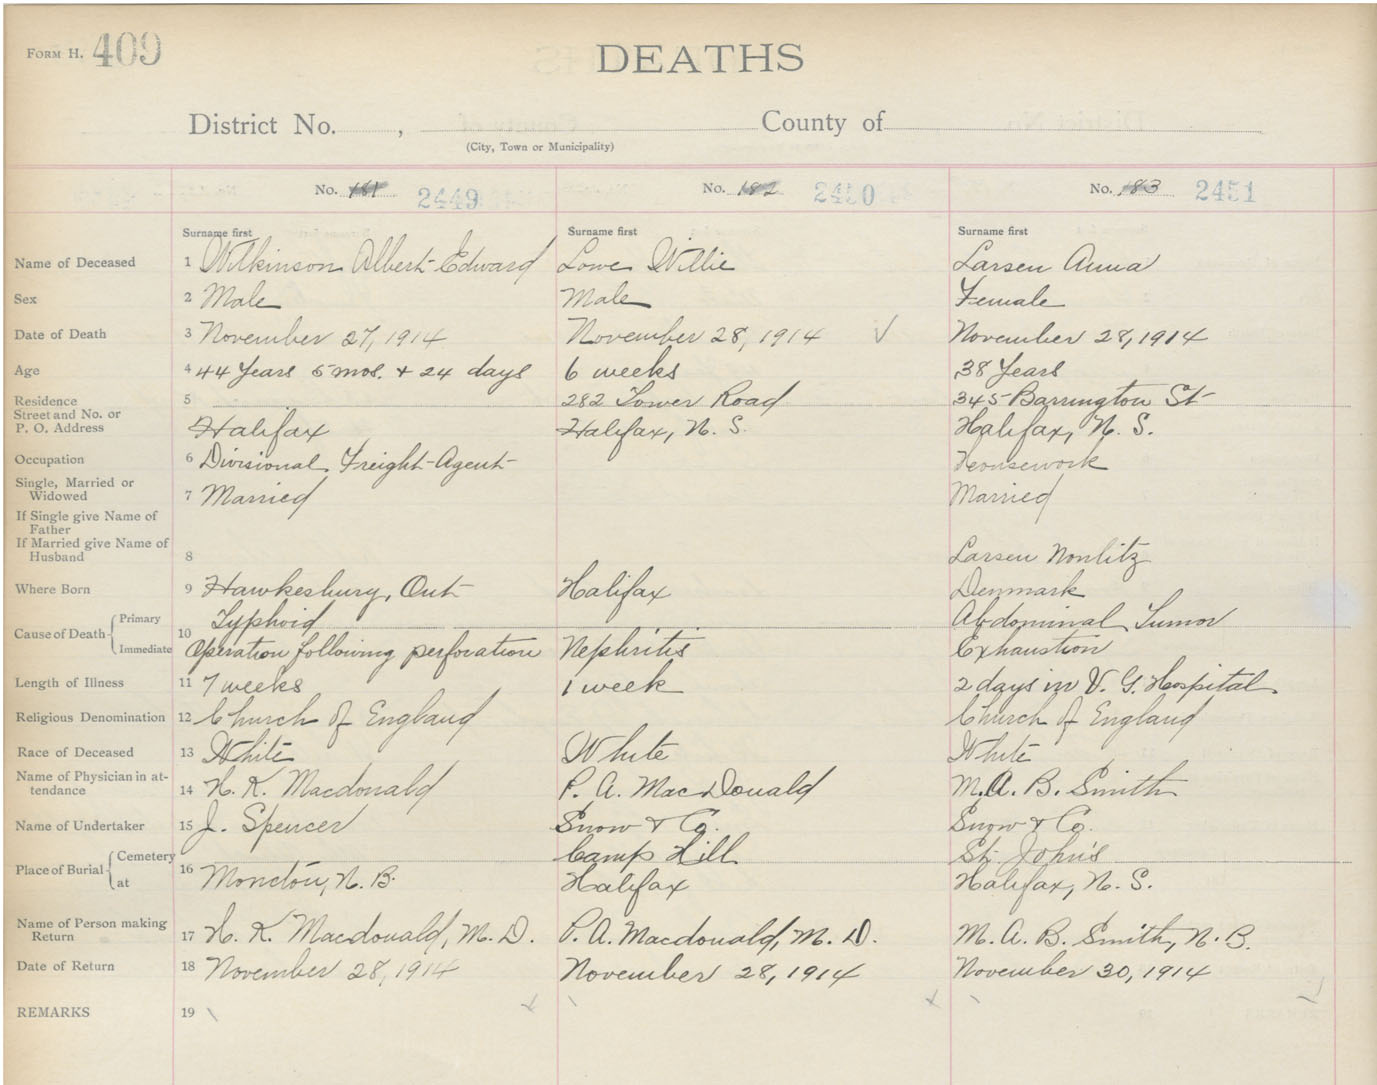 FORM H. 409
DEATHS
District No. , County of
(City, Town or Municipality)
No. 181 2449 No. 182 2450 No. 183 2451
Surname first Surname first Surname first
Name of Deceased 1 Wilkinson Albert Edward Lowe Willie Larsen Anna
Sex 2 Male Male Female
Date of Death 3 November 27, 1914 November 28, 1914 November 28, 1914
Age 4 44 Years 5 mos. + 24 days 6 weeks 38 Years
Residence 5 282 Tower Road 345 Barrington St
Street and No. or
P. O. Address Halifax Halifax, N. S. Halifax, N. S.
Occupation 6 Divisional Freight Agent Housework
Single, Married or
Widowed 7 Married Married
If Single give Name of
Father
If Married give Name of
Husband 8 Larsen
Where Born 9 Hawkesbury, Ont Halifax Denmark
Cause of Death Primary 10 Typhoid Abdominal Tumor
Immediate Operation following perforation Nephritis Exhaustion
Length of Illness 11 7 weeks 1 week 2 days in V. G. Hospital
Religious Denomination 12 Church of England Church of England
Race of Deceased 13 White White White
Name of Physician in at-
tendance 14 H. K. Macdonald P. A. MacDonald M. A. B. Smith
Name of Undertaker 15 J. Spencer Snow & Co. Snow & Co.
Place of Burial Cemetery 16 Camp Hill St. John's
at Moncton, N. B. Halifax Halifax, N. S.
Name of Person making
Return 17 H. K. Macdonald, M. D. P. A. Macdonald, M. D. M. A. B. Smith, N. B.
Date of Return 18 November 28, 1914 November 28, 1914 November 30, 1914
REMARKS 19